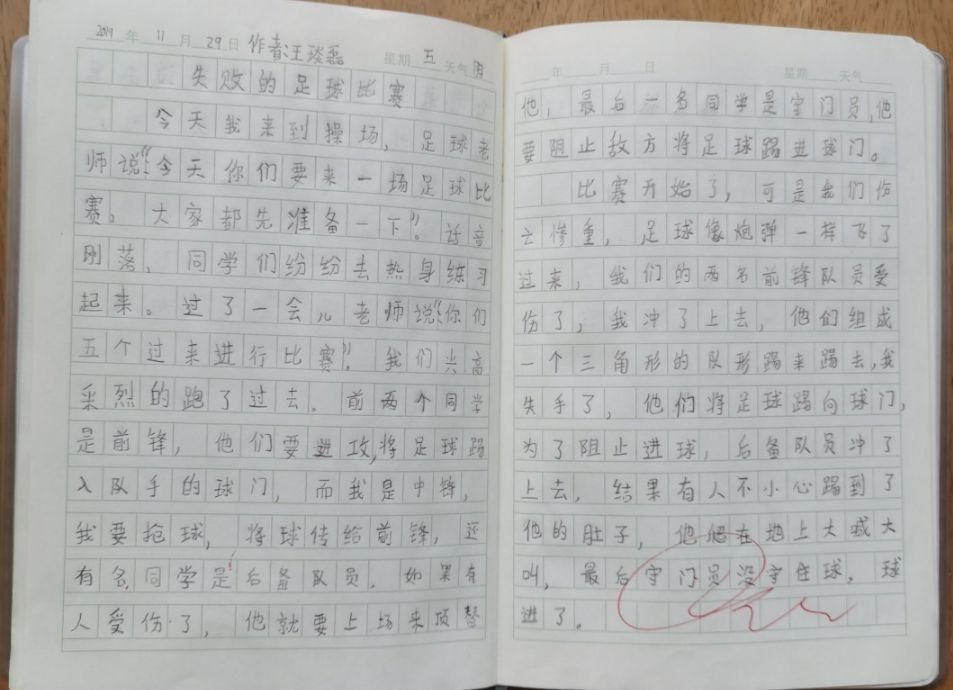 2019年11月29日 作者:王琰磊 星期五 天气阴
失败的足球比赛
今天我来到操场，足球老
师说:“今天你们要来一场足球比
赛。大家都先准备一下”。话音
刚落，同学们纷纷去热身练习
起来。过了一会儿老师说:“你们
五个过来进行比赛”。我们兴高
采烈的跑了过去。前两个同学
是前锋，他们要进攻,将足球踢
入队手的球门，而我是中锋，
我要抢球，将球传给前锋，还
有名同学是后备队员．如果有
人受伤了，他就要上场来顶替
年 月 日 星期 天气
他，最后一名同学是守门员,他
要阻止敌方将足球踢进球门。
比赛开始了，可是我们伤
亡惨重，足球像炮弹一样飞了
过来，我们的两名前锋队员受
伤了，我冲了上去，他们组成
一个三角形的队形踢来踢去,我
失手了，他们将足球踢向球门，
为了阻止进球，后备队员冲了
上去，结果有人不小心踢到了
他的肚子，他爬在地上大喊大
叫，最后守门员没守住球．球
进了。